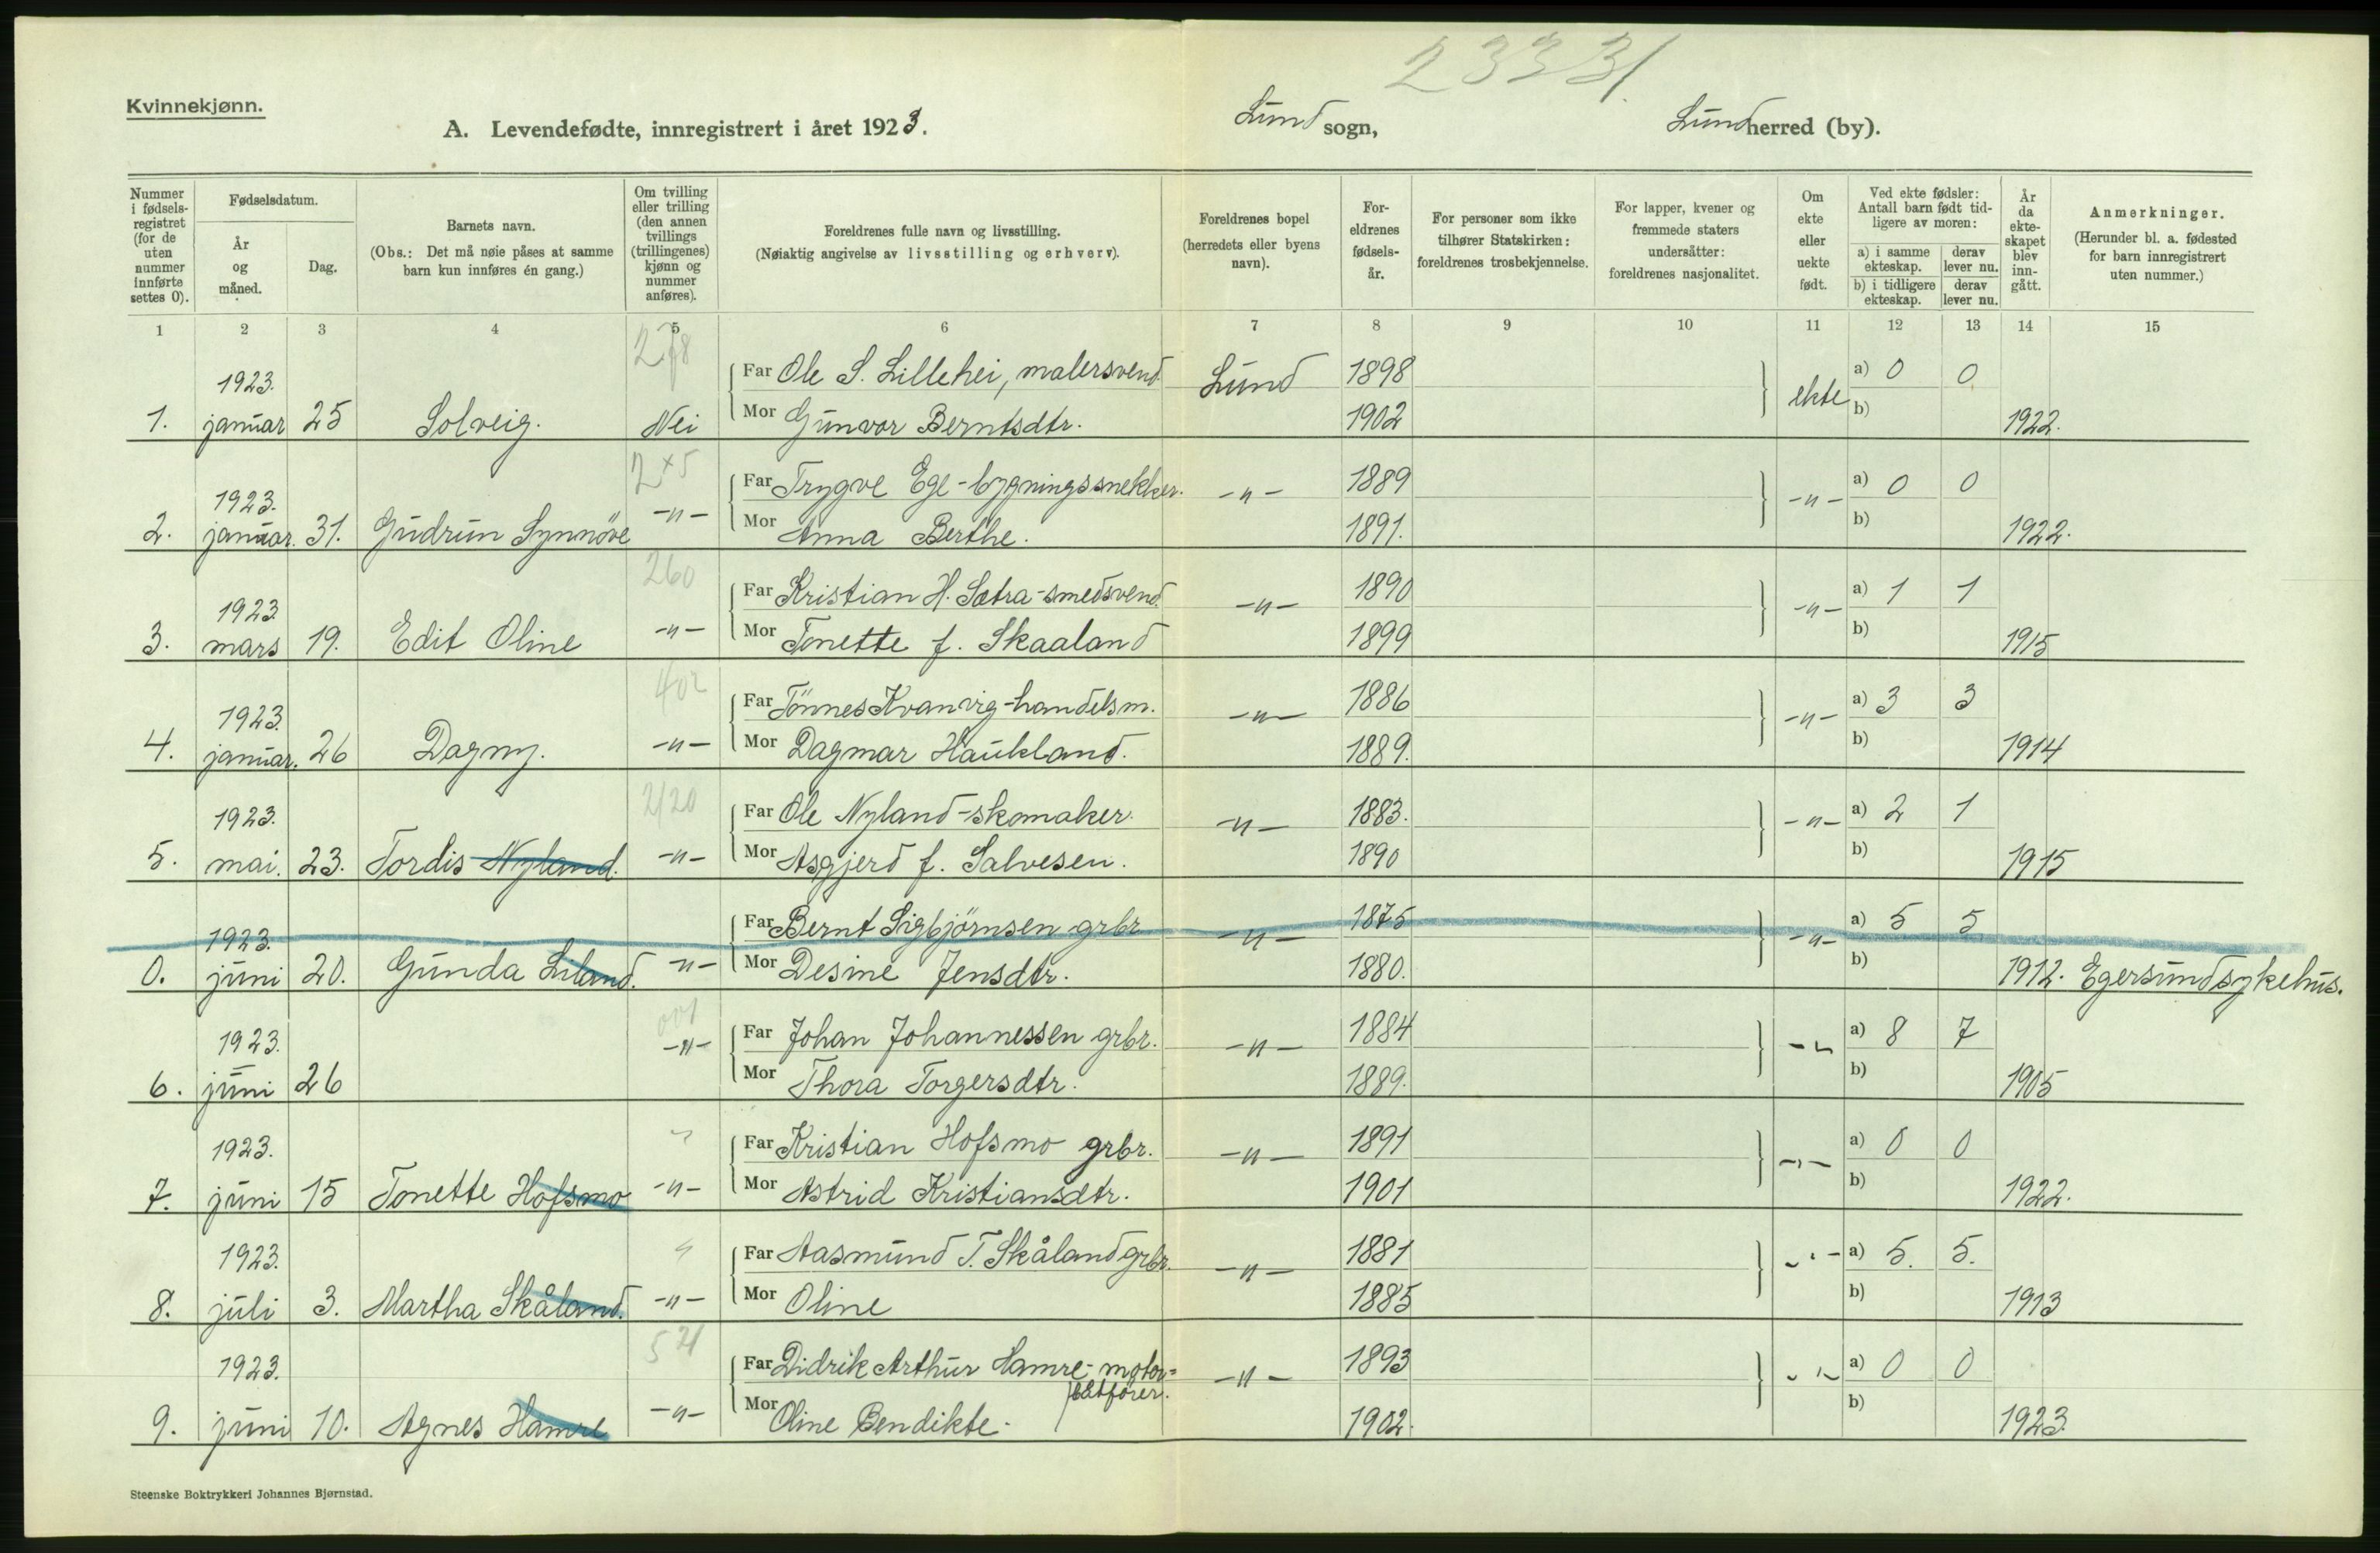 23331
Kvinnekjønn.
A. Levendefødte, innregistrert i året 1923.
Lund sogn,
Lund herred (by).
Nummer i fødsels-registret (for de uten nummer innførte settes 0).
Fødselsdatum.
År og måned.
Dag.
Barnets navn.
(Obs.: Det må nøie påses at samme barn kun innføres én gang.)
Om tvilling eller trilling (den annen tvillings (trillingenes) kjønn og nummer anføres).
Foreldrenes fulle navn og livsstilling.
(Nøiaktig angivelse av livsstilling og erhverv).
Foreldrenes bopel (herredets eller byens navn).
For-eldrenes fødsels-år.
For personer som ikke tilhører Statskirken: foreldrenes trosbekjennelse.
For lapper, kvener og fremmede staters undersåtter: foreldrenes nasjonalitet.
Om ekte eller uekte født.
Ved ekte fødsler: Antall barn født tid-ligere av moren:
a) i samme ekteskap.
derav lever nu.
b) i tidligere ekteskap.
derav lever nu.
År da ekte-skapet blev inn-gått.
Anmerkninger.
(Herunder bl. a. fødested for barn innregistrert uten nummer.)
1 2 3 4 5 6 7 8 9 10 11 12 13 14 15
278
1923. Far Ole S. Lillehei, malersvend Lund 1898 ekte a) 0 0
1. januar 25 Solveig. Nei Mor Gunvor Berntsdtr. 1902 b) 1922.
1923. Far Trygve Ege - bygningssnekker. -"- 1889 -"- a) 0 0
2. januar. 31. Gudrun Synnöve -"- Mor Anna Berthe. 1891. b) 1922.
260
1923 Far Kristian H. Sætra - smedsvend. -"- 1890 -"- a) 1 1
3. mars 19. Edit Oline -"- Mor Tonette f. Skaaland 1899 b) 1915
402
1923. Far Tönnes Kvanvig - handelsm. -"- 1886 -"- a) 3 3
4. januar. 26 Dagny. -"- Mor Dagmar Haukland. 1889. b) 1914
2/20
1923. Far Ole Nyland - skomaker. -"- 1883. -"- a) 2 1
5. mai. 23. Tordis Nyland. -"- Mor Asgjerd f. Salvesen. 1890 b) 1915
1923. Far Bernt Sigbjörnsen grbr -"- 1875 -"- a) 5 5
0. juni 20. Gunda Liland. -"- Mor Desine Jensdtr. 1880. b) 1912. Egersund sykehus.
001
1923. Far Johan Johannessen grbr. -"- 1884 -"- a) 8 7
6. juni 26 -"- Mor Thora Torgersdtr. 1889. b) 1905
1923. Far Kristian Hofsmo grbr. -"- 1891 -"- a) 0 0
7. juni 15 Tonette Hofsmo -"- Mor Astrid Kristiansdtr. 1901 b) 1922.
1923. Far Aasmund T. Skåland grbr. -"- 1881 -"- a) 5. 5.
8. juli 3. Martha Skåland. -"- Mor Oline 1885 b) 1913
521
1923. Far Didrik Arthur Hamre - motor= -"- 1893 -"- a) 0 0
båtförer.
9. juni 10. Agnes Hamre -"- Mor Oline Bendikte. 1902. b) 1923.
Steenske Boktrykkeri Johannes Bjørnstad.